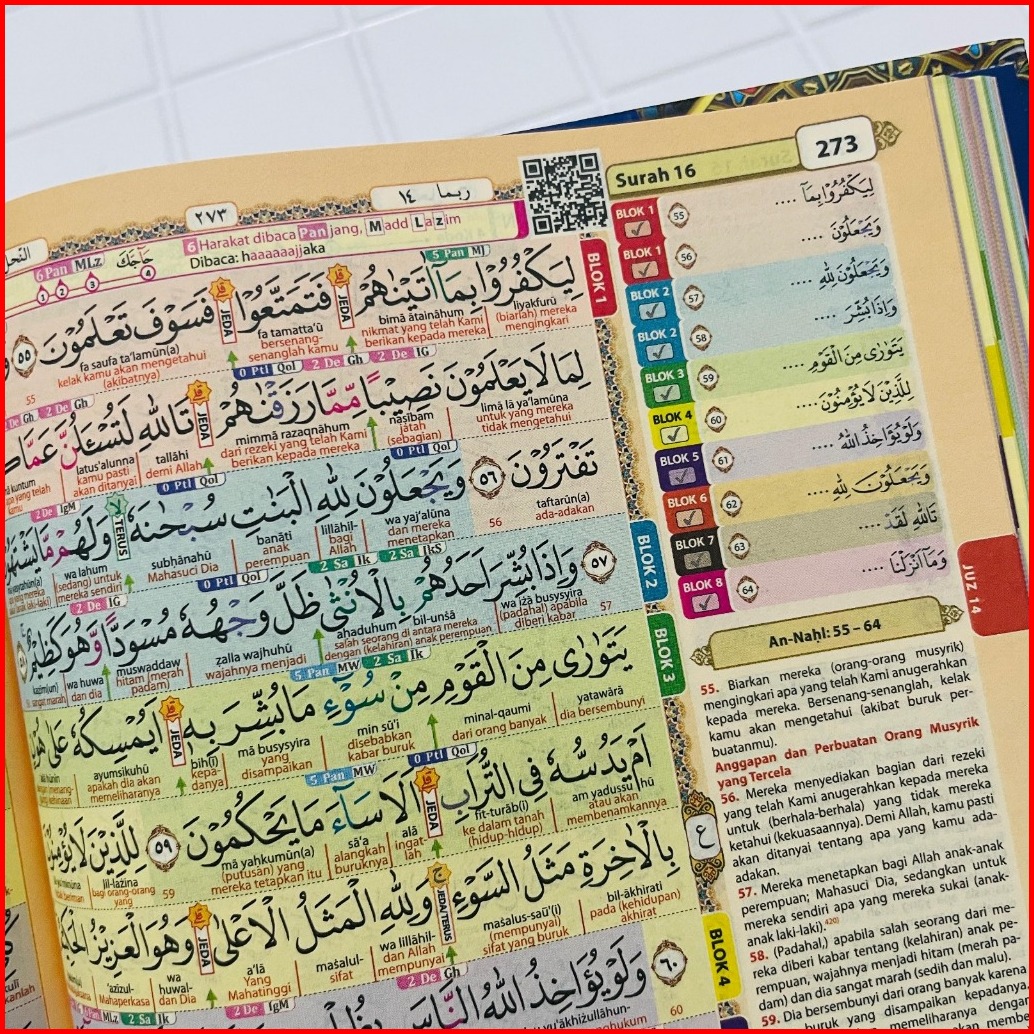 Surah 16
273
٢٧٣
ربما ١٤
6 Harakat dibaca Panjang, Madd Lazim
Dibaca: haaaaaajjaka
حَآجَّكَ
6 Pan MLz
5 Pan MJ
لِيَكْفُرُوْا بِمَآ اٰتَيْنٰهُمْ فَتَمَتَّعُوْا فَسَوْفَ تَعْلَمُوْنَ ٥٥
liyakfurū
(biarlah) mereka
mengingkari
bimā ātaināhum
nikmat yang telah Kami
berikan kepada mereka
fa tamatta'ū
bersenang-
senanglah kamu
fa saufa ta'lamūn(a)
kelak kamu akan mengetahui
(akibatnya)
55
0 Ptl Qol
2 De Gh
2 De IG
لِمَا لَا يَعْلَمُوْنَ نَصِيْبًا مِّمَّا رَزَقْنٰهُمْ تَاللّٰهِ لَتُسْـَٔلُنَّ عَمَّا
limā lā ya'lamūna
untuk yang mereka
tidak mengetahui
naṣībam
jatah
(sebagian)
mimmā razaqnāhum
dari rezeki yang telah Kami
berikan kepada mereka
tallāhi
demi Allah
latus'alunna
kamu pasti
akan ditanyai
0 Ptl Qol
0 Ptl Qol
تَفْتَرُوْنَ ٥٦ وَيَجْعَلُوْنَ لِلّٰهِ الْبَنٰتِ سُبْحٰنَهٗ وَلَهُمْ مَّا يَشْتَهُوْنَ
taftarūn(a)
ada-adakan
56
wa yaj'alūna
dan mereka
menetapkan
lillāhil-
bagi
Allah
banāti
anak
perempuan
subḥānahū
Mahasuci Dia
wa lahum
(sedang) untuk
mereka sendiri
0 Ptl Qol
2 Sa Ik
2 Sa IkS
2 De IG
٥٧ وَاِذَا بُشِّرَ اَحَدُهُمْ بِالْاُنْثٰى ظَلَّ وَجْهُهٗ مُسْوَدًّا وَّهُوَ كَظِيْمٌ ٥٨
57
wa iżā busysyira
(padahal) apabila
diberi kabar
aḥaduhum bil-unṡā
salah seorang di antara mereka
dengan (kelahiran) anak perempuan
ẓalla wajhuhū
wajahnya menjadi
muswaddaw
hitam (merah
padam)
wa huwa
dan dia
5 Pan MW
2 Sa Ik
يَتَوَارٰى مِنَ الْقَوْمِ مِنْ سُوْۤءِ مَا بُشِّرَ بِهٖ اَيُمْسِكُهٗ عَلٰى هُوْنٍ
yatawārā
dia bersembunyi
minal-qaumi
dari orang banyak
min sū'i
disebabkan
kabar buruk
mā busysyira
yang
disampaikan
bih(ī)
kepa-
danya
ayumsikuhū
apakah dia akan
memeliharanya
0 Ptl Qol
5 Pan MW
اَمْ يَدُسُّهٗ فِى التُّرَابِ اَلَا سَاۤءَ مَا يَحْكُمُوْنَ ٥٩ لِلَّذِيْنَ لَا يُؤْمِنُوْنَ
am yadussuhū
atau akan
membenamkannya
fit-turāb(i)
ke dalam tanah
(hidup-hidup)
alā
ingat-
lah
sā'a
alangkah
buruknya
mā yaḥkumūn(a)
(putusan) yang
mereka tetapkan itu
59
lil-lażīna
bagi orang-orang
yang
بِالْاٰخِرَةِ مَثَلُ السَّوْءِ وَلِلّٰهِ الْمَثَلُ الْاَعْلٰى وَهُوَ الْعَزِيْزُ الْحَكِيْمُ
bil-ākhirati
pada (kehidupan)
akhirat
maṡalus-sau'(i)
(mempunyai)
sifat yang buruk
wa lillāhil-
dan Allah
mempunyai
maṡalul-
sifat
a'lā
Yang
Mahatinggi
wa huwal-
dan Dia
'azīzul-
Mahaperkasa
2 De Gh
2 De IgM
2 Sa Ik
٦٠ وَلَوْ يُؤَاخِذُ اللّٰهُ النَّاسَ بِظُلْمِهِمْ
60
BLOK 1
BLOK 2
BLOK 3
ع
BLOK 4
BLOK 1 55 لِيَكْفُرُوْا بِمَآ ....
BLOK 1 56 وَيَجْعَلُوْنَ ....
BLOK 2 57 وَيَجْعَلُوْنَ لِلّٰهِ ....
BLOK 2 58 وَاِذَا بُشِّرَ ....
BLOK 3 59 يَتَوَارٰى مِنَ الْقَوْمِ ....
BLOK 4 60 لِلَّذِيْنَ لَا يُؤْمِنُوْنَ....
BLOK 5 61 وَلَوْ يُؤَاخِذُ اللّٰهُ ....
BLOK 6 62 وَيَجْعَلُوْنَ لِلّٰهِ ....
BLOK 7 63 تَاللّٰهِ لَقَدْ ....
BLOK 8 64 وَمَآ اَنْزَلْنَا ....
JUZ 14
An-Nahl: 55 – 64
55. Biarkan mereka (orang-orang musyrik)
mengingkari apa yang telah Kami anugerahkan
kepada mereka. Bersenang-senanglah, kelak
kamu akan mengetahui (akibat buruk per-
buatanmu).
Anggapan dan Perbuatan Orang Musyrik
yang Tercela
56. Mereka menyediakan bagian dari rezeki
yang telah Kami anugerahkan kepada mereka
untuk (berhala-berhala) yang tidak mereka
ketahui (kekuasaannya). Demi Allah, kamu pasti
akan ditanyai tentang apa yang kamu ada-
adakan.
57. Mereka menetapkan bagi Allah anak-anak
perempuan; Mahasuci Dia, sedangkan untuk
mereka sendiri apa yang mereka sukai (anak-
anak laki-laki). 420)
58. (Padahal,) apabila salah seorang dari me-
reka diberi kabar tentang (kelahiran) anak pe-
rempuan, wajahnya menjadi hitam (merah pa-
dam) dan dia sangat marah (sedih dan malu).
59. Dia bersembunyi dari orang banyak karena
buruk yang disampaikan kepadanya.
memeliharanya dengan